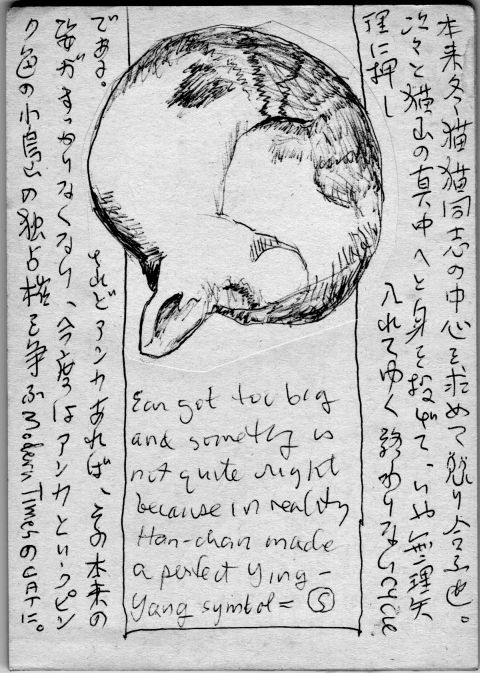 本来冬、猫猫同志の中心を求めて競り合ふ也。
次々と猫山の真中へと身を投げて、いや無理矢
理に押し
入れてゆく終わりなきcycle
である。
されどアンカあれば、その本来の
姿がすっかりなくなり、今度はアンカというピン
ク色の小島山の独占権を争ふModern TimesのCATに。
Ear got too big
and something is
not quite right
because in reality
Han-chan made
a perfect Ying-
Yang symbol= S